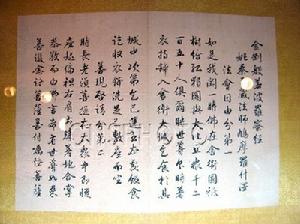 金剛般若波羅蜜經
姚秦三藏法師鳩摩羅什譯
法會因由分第一
如是我聞一時佛在舍衛國祇
樹給孤獨園與大比丘眾千二
百五十人俱爾時世尊食時著
衣持缽入舍衛大城乞食於其
城中次第乞已還至本處飯食
訖收衣缽洗足已敷座而坐
善現啟請分第二
時長老須菩提在大眾中即從
座起偏袒右肩右膝著地合掌
恭敬而白佛言希有世尊如來
善護念諸菩薩善付囑諸菩薩